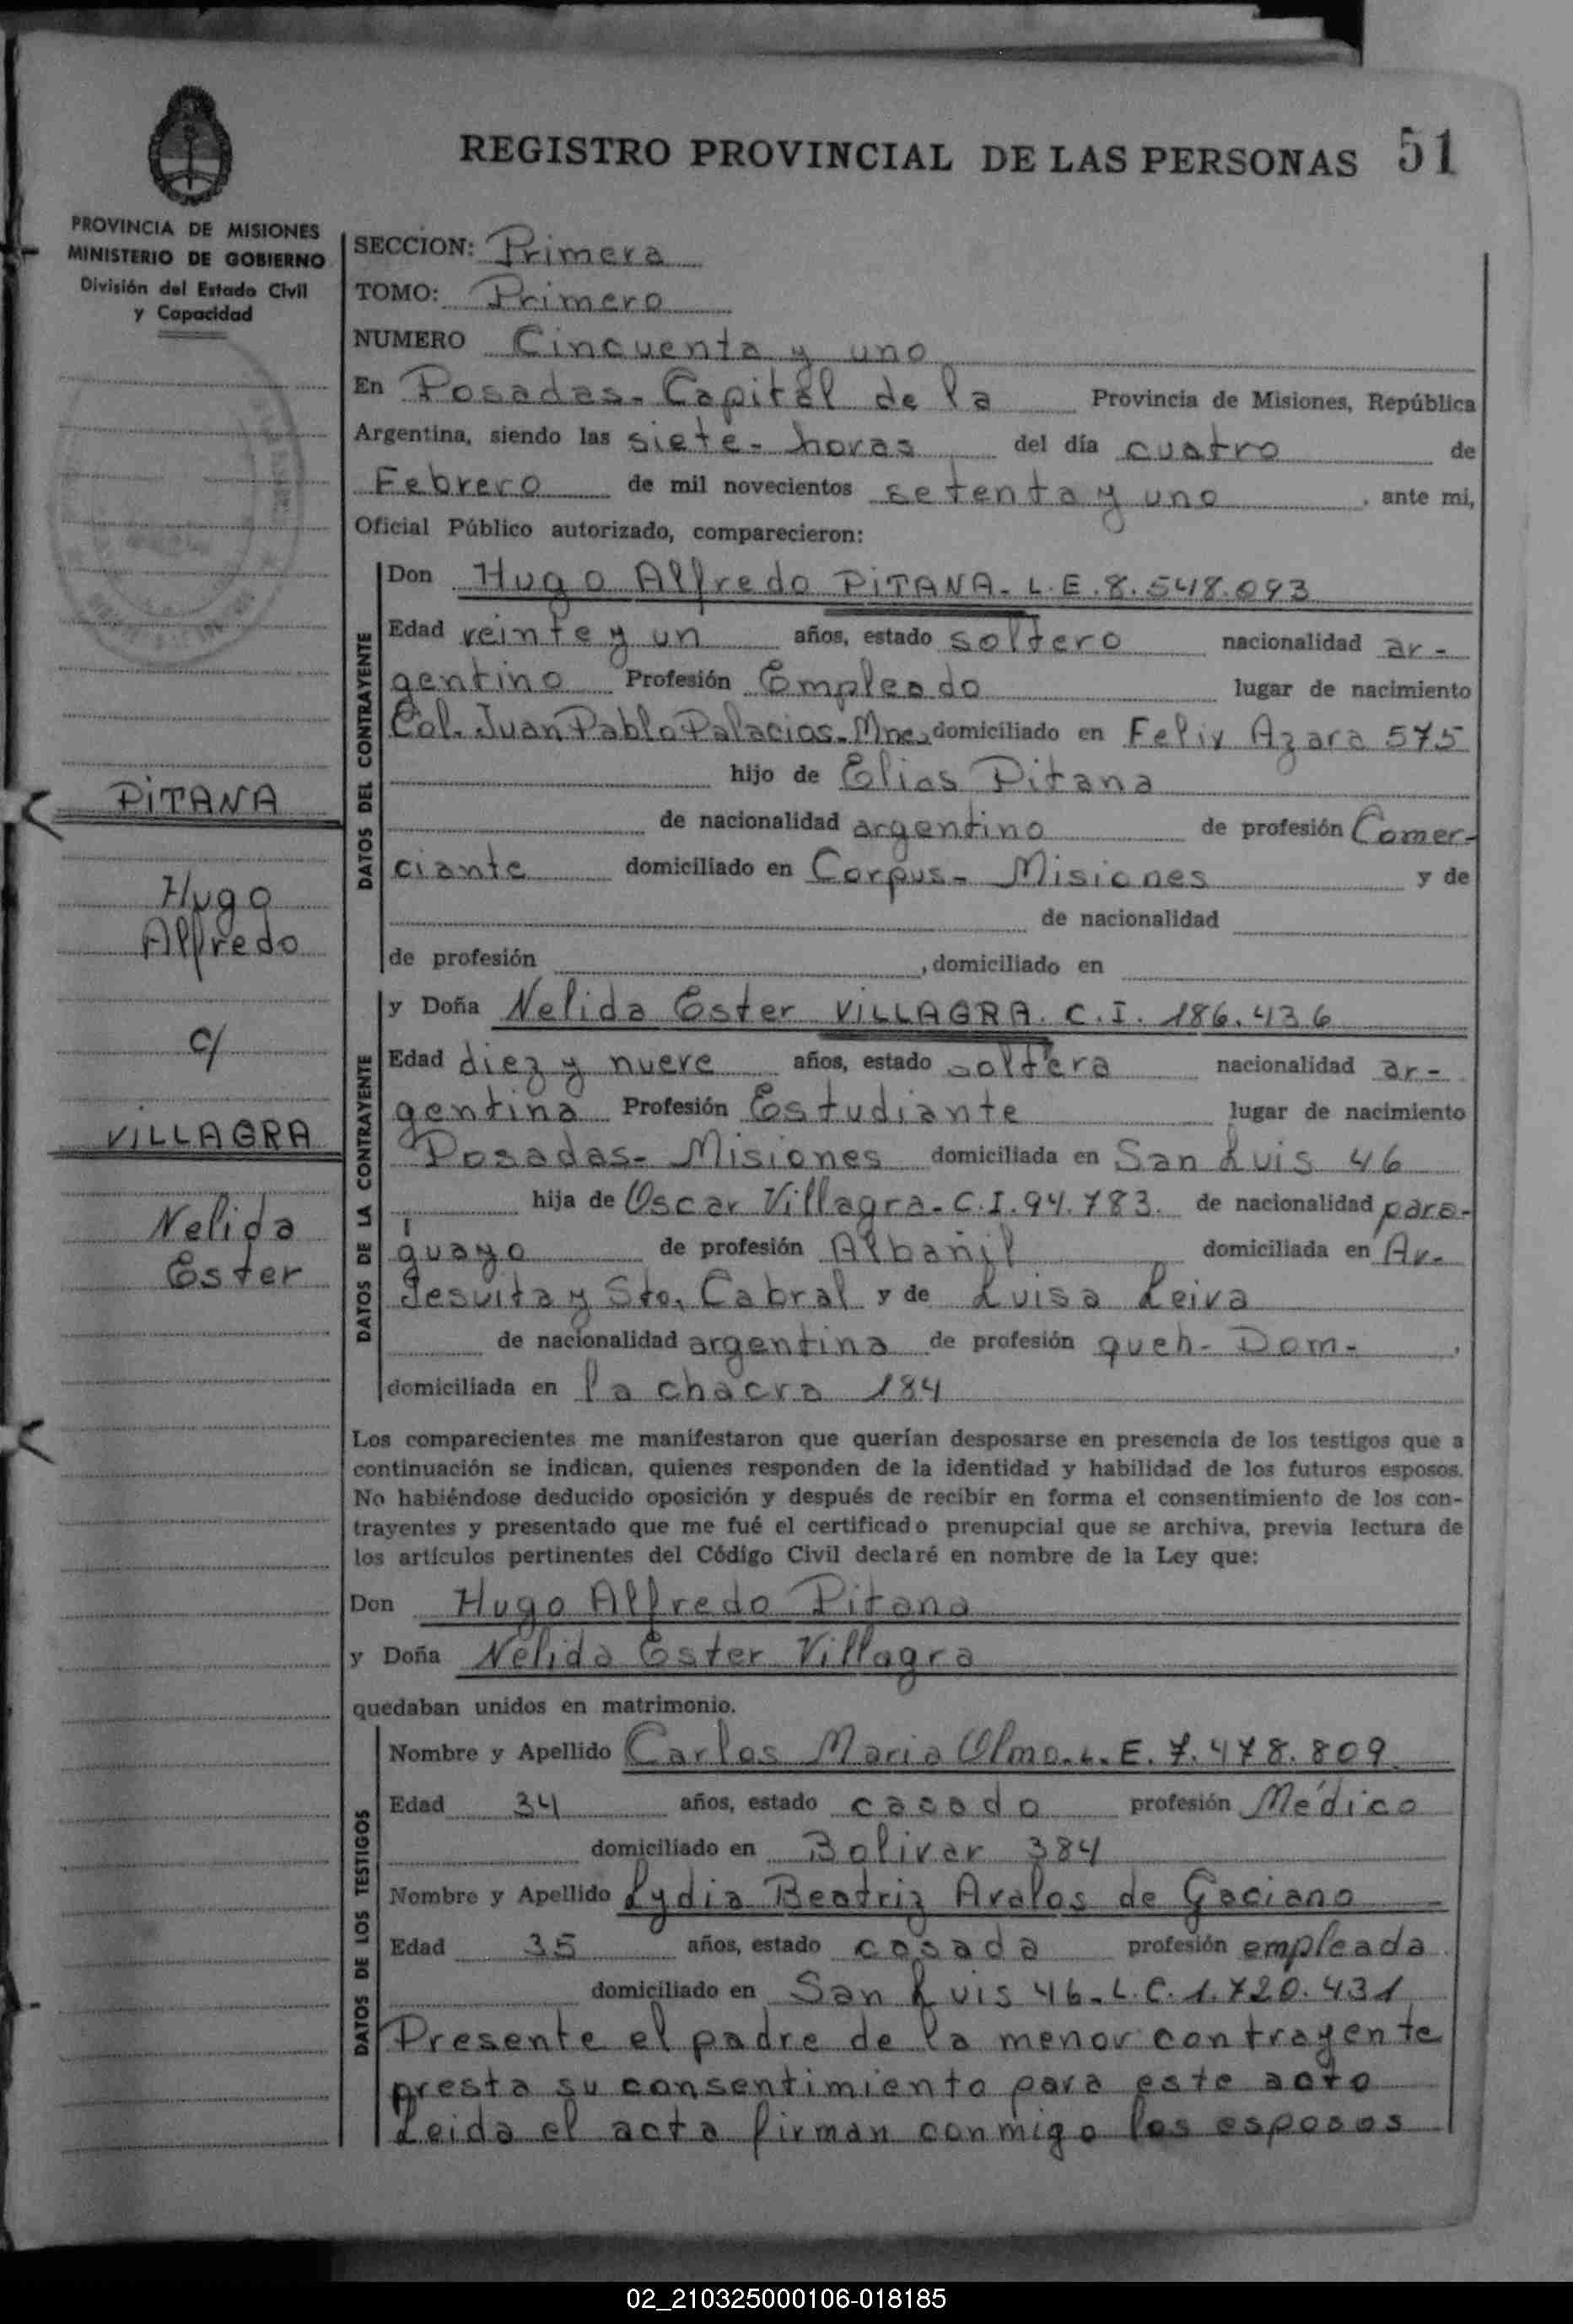 REGISTRO PROVINCIAL DE LAS PERSONAS 51
PROVINCIA DE MISIONES
MINISTERIO DE GOBIERNO
División del Estado Civil
y Capacidad
PITANA
Hugo
Alfredo
c/
VILLAGRA
Nelida
Ester
SECCION: Primera
TOMO: Primero
NUMERO Cincuenta y uno
En Posadas - Capital de la Provincia de Misiones, República
Argentina, siendo las siete - horas del día cuatro de
Febrero de mil novecientos setenta y uno, ante mi,
Oficial Público autorizado, comparecieron:
DATOS DEL CONTRAYENTE
Don Hugo Alfredo PITANA - L.E. 8.548.093
Edad veinte y un años, estado soltero nacionalidad ar-
gentino Profesión Empleado lugar de nacimiento
Col. Juan Pablo Palacios - Mnes domiciliado en Felix Azara 575
hijo de Elias Pitana
de nacionalidad argentino de profesión Comer-
ciante domiciliado en Corpus - Misiones y de
de nacionalidad
de profesión , domiciliado en
DATOS DE LA CONTRAYENTE
y Doña Nelida Ester VILLAGRA. C.I. 186.436
Edad diez y nueve años, estado soltera nacionalidad ar-
gentina Profesión Estudiante lugar de nacimiento
Posadas - Misiones domiciliada en San Luis 46
hija de Oscar Villagra - C.I. 94.783. de nacionalidad para-
guayo de profesión Albañil domiciliada en Av.
Jesuita y Sto. Cabral y de Luisa Leiva
de nacionalidad argentina de profesión queh - Dom - ,
domiciliada en la chacra 184
Los comparecientes me manifestaron que querían desposarse en presencia de los testigos que a
continuación se indican, quienes responden de la identidad y habilidad de los futuros esposos.
No habiéndose deducido oposición y después de recibir en forma el consentimiento de los con-
trayentes y presentado que me fué el certificado prenupcial que se archiva, previa lectura de
los artículos pertinentes del Código Civil declaré en nombre de la Ley que:
Don Hugo Alfredo Pitana
y Doña Nelida Ester Villagra
quedaban unidos en matrimonio.
DATOS DE LOS TESTIGOS
Nombre y Apellido Carlos Maria Olmo - L.E. 7.478.809
Edad 34 años, estado casado profesión Médico
domiciliado en Bolivar 384
Nombre y Apellido Lydia Beatriz Avalos de Gaciano
Edad 35 años, estado casada profesión empleada
domiciliado en San Luis 46 - L.C. 1.720.431
Presente el padre de la menor contrayente
presta su consentimiento para este acto
Leida el acta firman conmigo los esposos
02_210325000106-018185